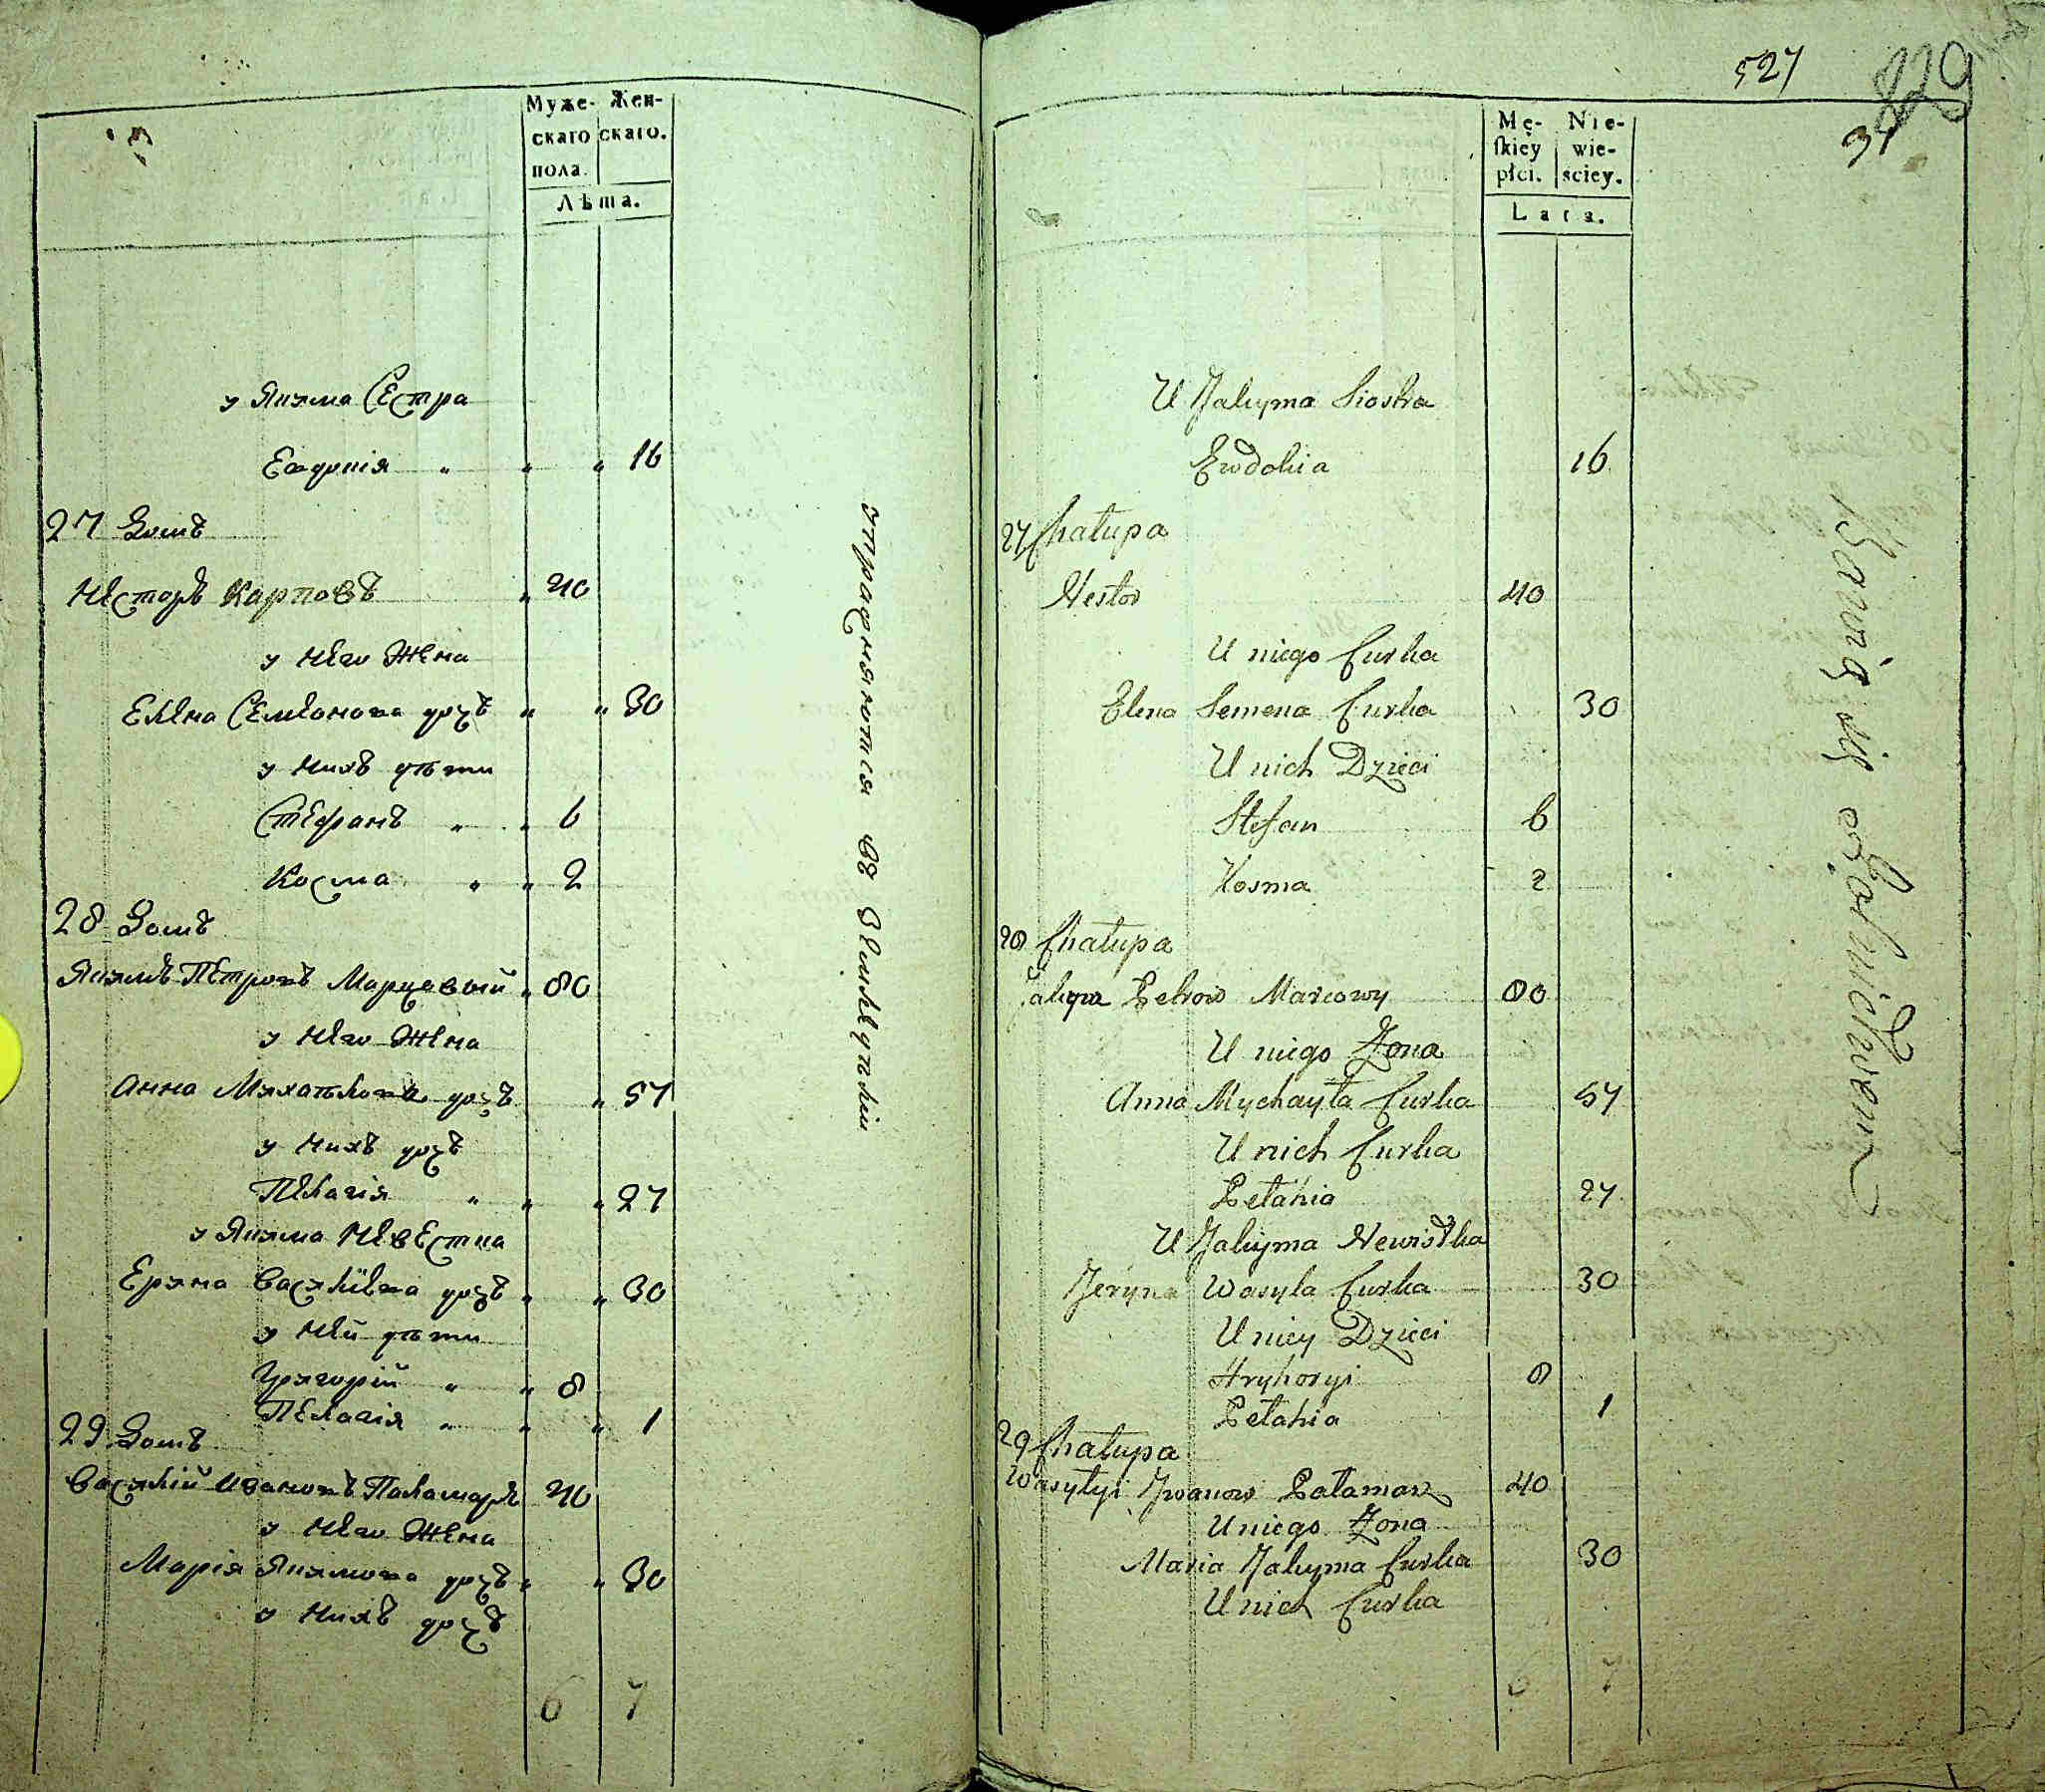 Муже- Жен-
скаго скаго.
пола.
Лѣта.
у Якима Сестра
Евдокія " " " 16
27 Домъ
Несторъ Карповъ " 40
у Него Жена
Елена Семіонова дочъ " " 30
у Нихъ дѣти
Стефанъ " " 6
Косма " " 2
28 Домъ
Якимъ Петровъ Марцевый " 80
у Него Жена
Анна Михайлова дочъ " 57
у Нихъ дочъ
Пелагія " " " 27
у Якима Невестка
Ерина Василіева дочъ " " 30
у Ней дѣти
Григорій " " 8
Пелагія " " " 1
29 Домъ
Василій Ивановъ Паламаръ 40
у Него Жена
Марія Якимова дочъ " " 30
у Нихъ дочъ
6 7
упражняются въ Земледѣліи
527
229
31
Mę- Nie-
skiey wie-
płci. sciey.
Lata.
U Jakyma Siostra
Ewdokia 16
27 Chałupa
Nestor 40
U niego Curka
Elena Semena Curka 30
U nich Dzieci
Stefan 6
Kosma 2
28 Chałupa
Jakym Petrow Marcowy 80
U niego Żona
Anna Mychayła Curka 57
U nich Curka
Pełahia 27
U Jakyma Newistka
Jeryna Wasyla Curka 30
U niey Dzieci
Hryhoryi 8
Pełahia 1
29 Chałupa
Wasyłyi Jwanow Pałamarz 40
U niego Żona
Maria Jakyma Curka 30
U nich Curka
6 7
Bawią się Rolnictwem